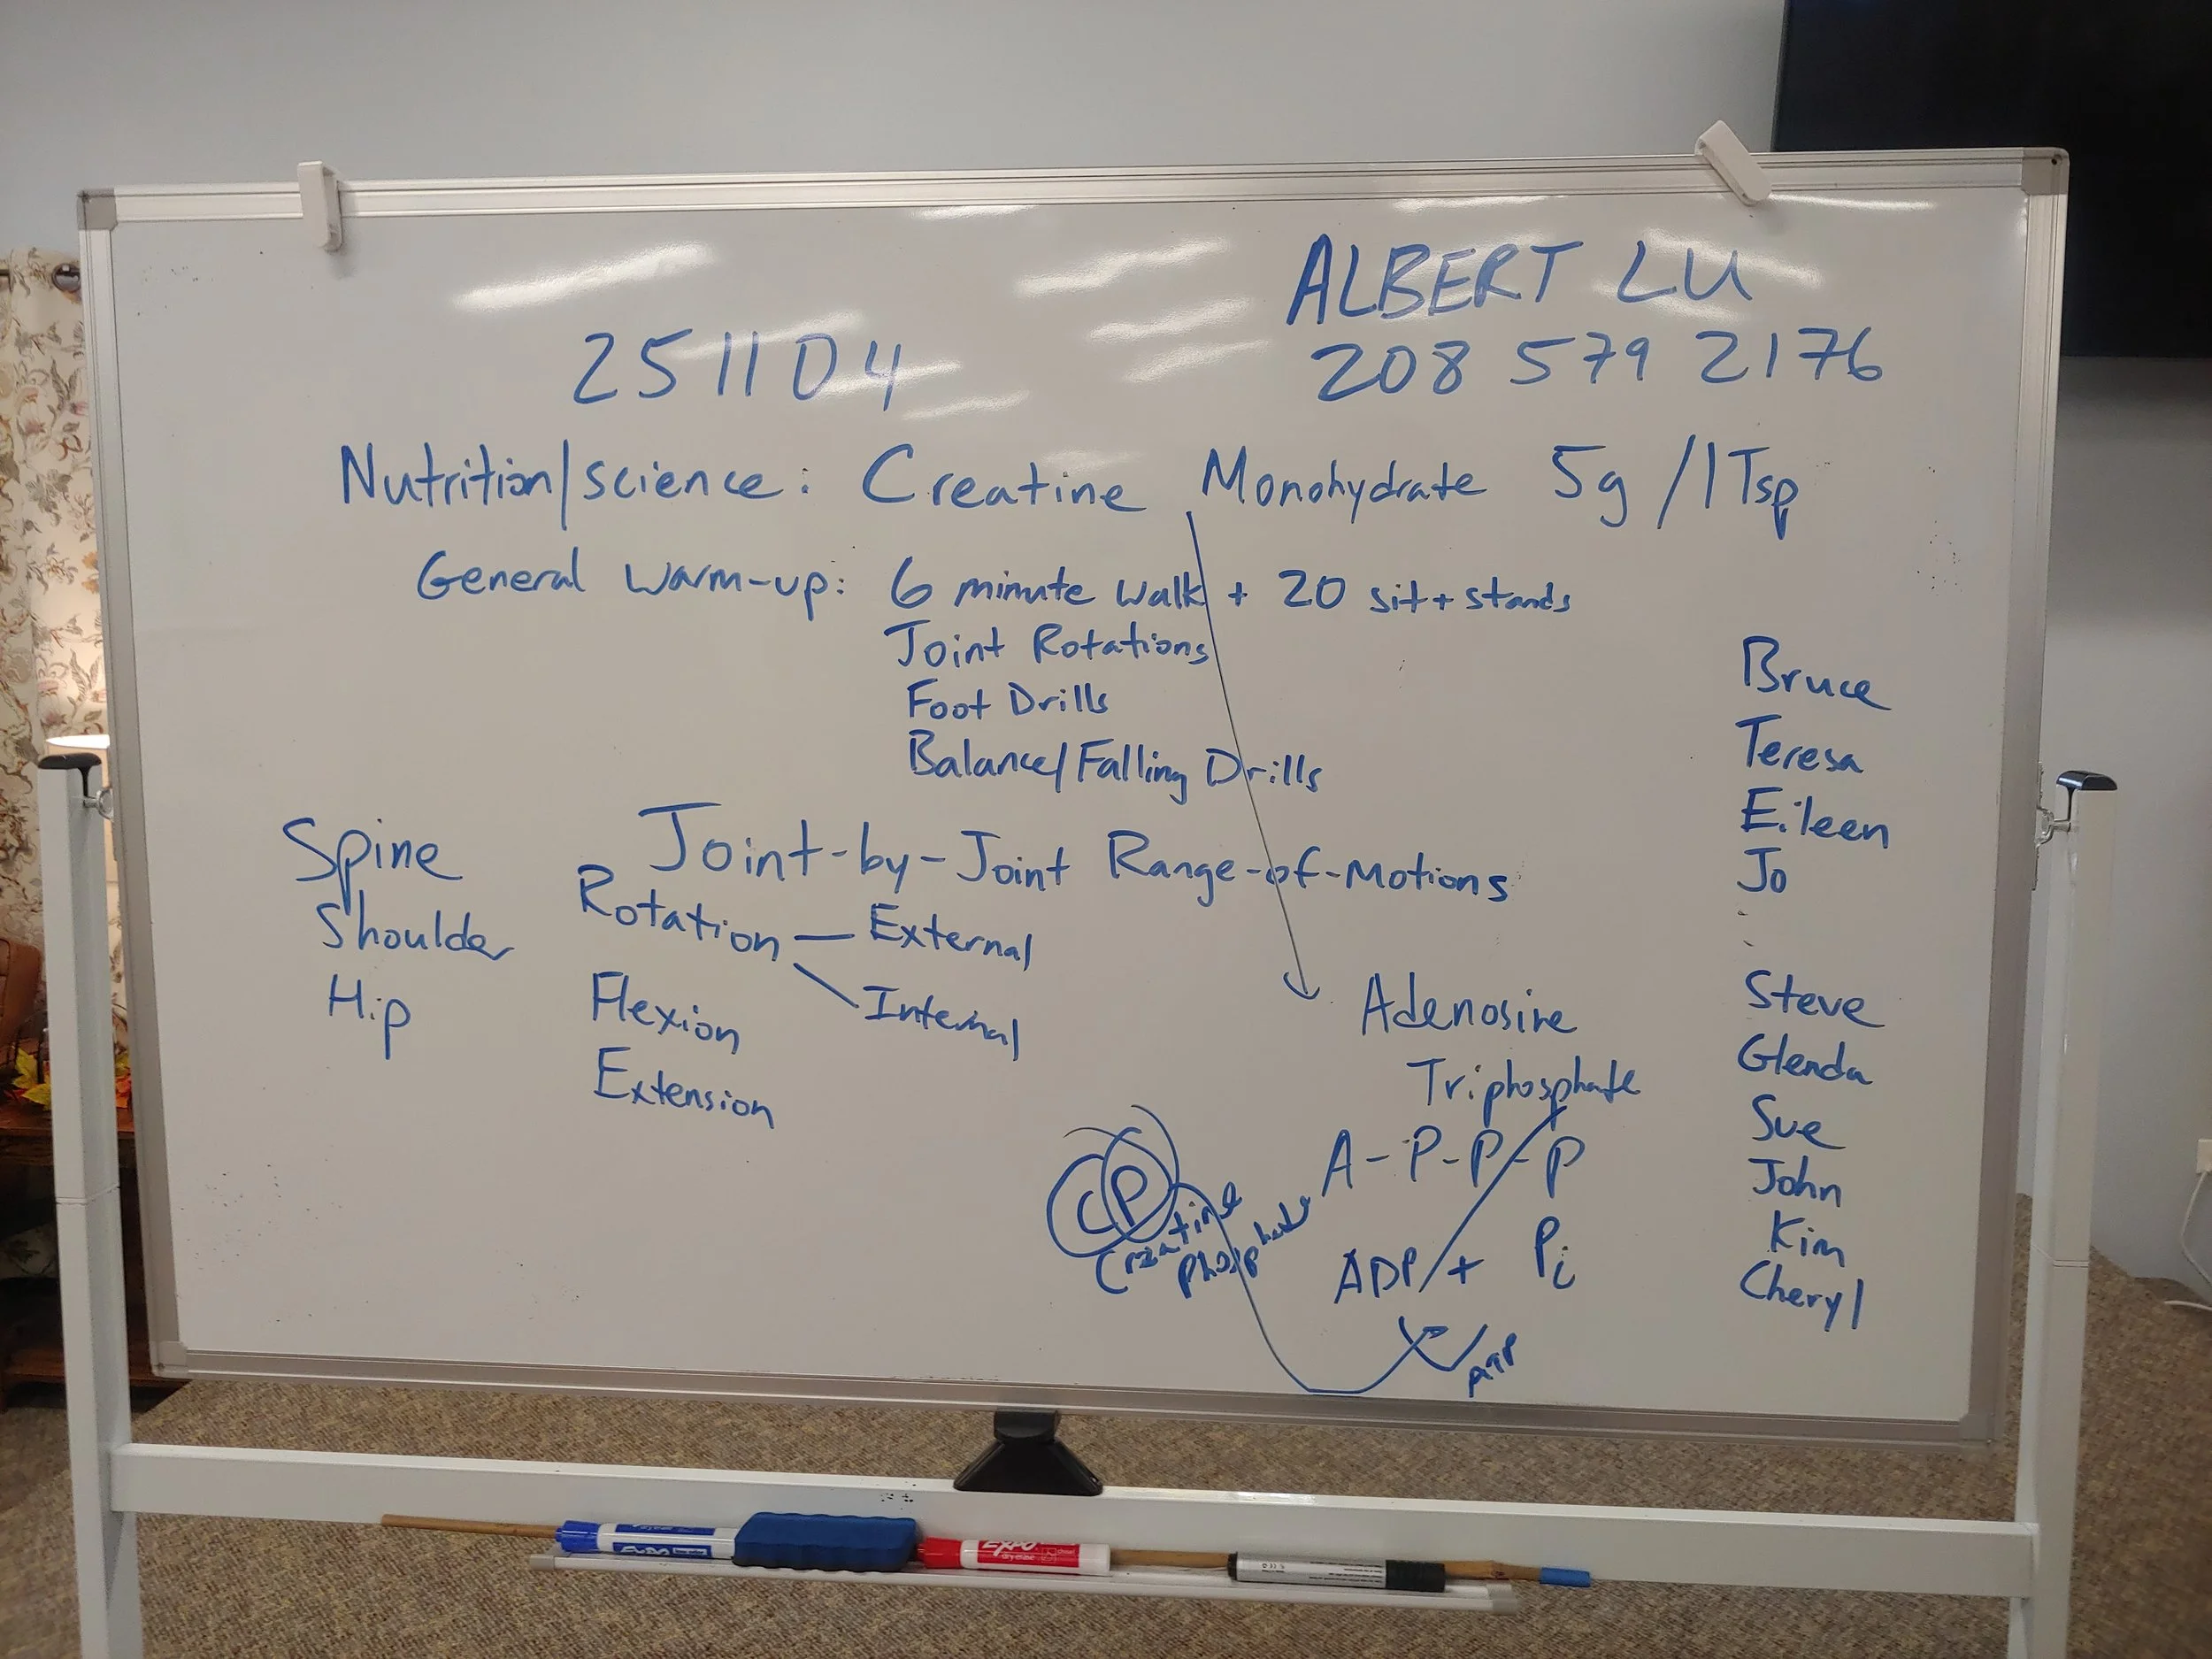 ALBERT LU
251104
208 579 2176
Nutrition/science: Creatine Monohydrate 5g /1 Tsp
General warm-up: 6 minute walk + 20 sit + stands
Joint Rotations
Foot Drills
Balance/Falling Drills
Joint-by-Joint Range-of-Motions
Spine
Shoulder
Hip
Rotation — External
Internal
Flexion
Extension
Adenosine
Triphosphate
A-P-P-P
CP
Creatine
Phosphate
ADP + Pi
Bruce
Teresa
Eileen
Jo
Steve
Glenda
Sue
John
Kim
Cheryl
EXPO
EXPO